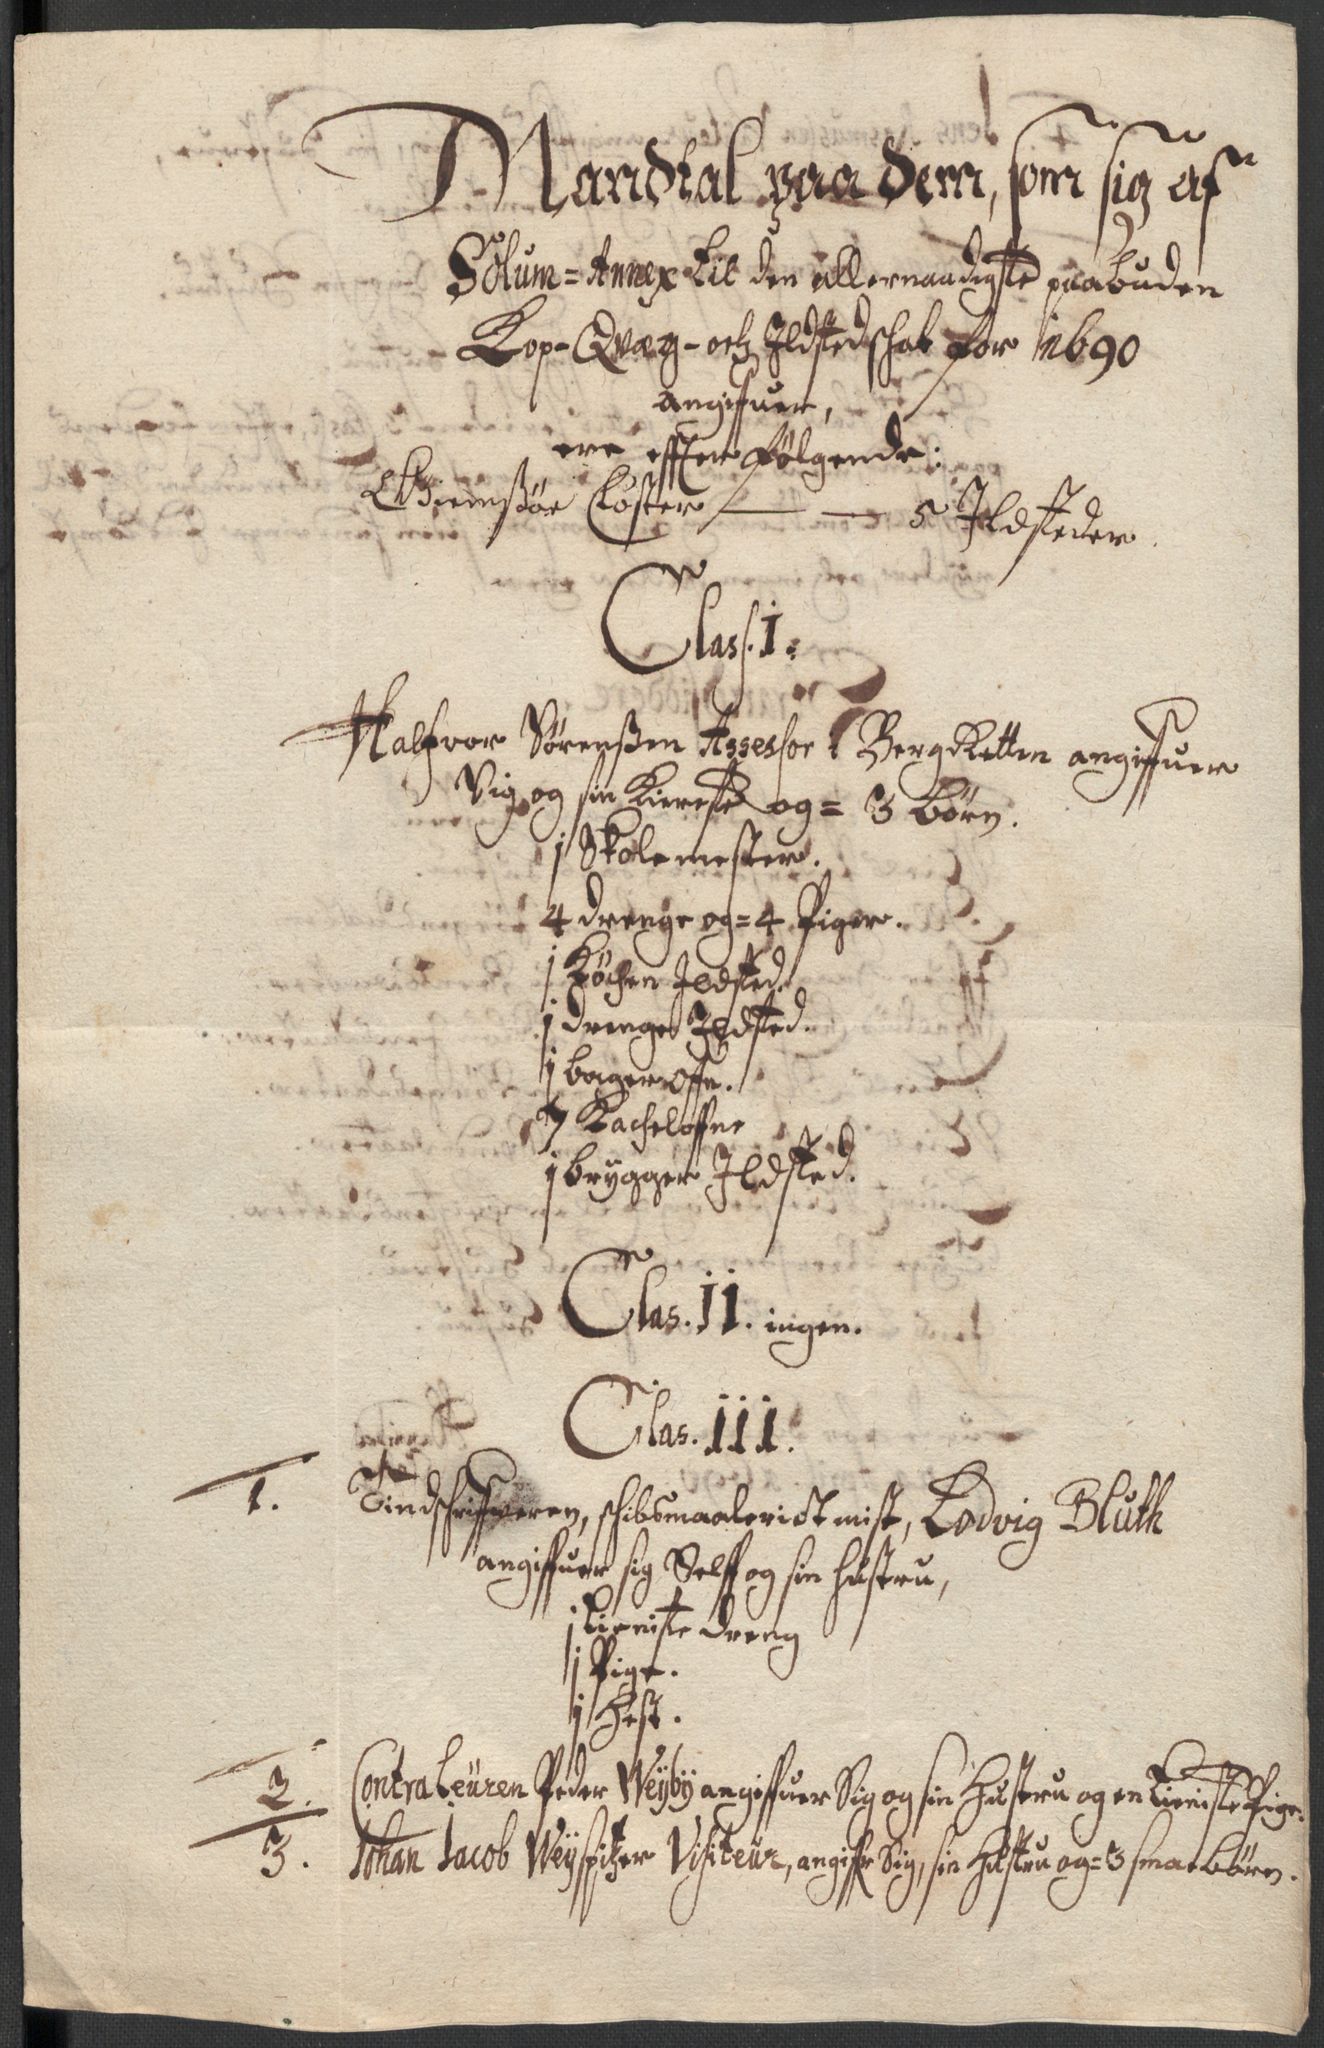 Mandtal paa dem, som sig af
Solum = Annex til den allernaadigste paabuden
Kop- Qvæg- och Ildstedschat for 1690
angifuer,
ere efter følgende:
Giemsøe Closter — — 5 Ildsteder.
Class. I.
Halfvor Sørensßen Assessor i BergRetten angiffuer
Sig og sin Kiereste og = 3 börn.
j Skolemester.
4 drenge og = 4 Piger.
j Köchen Ildsted.
j drenge Ildsted.
j bager offn.
7 Kacheloffne
j brygger Ildsted.
Clas. II. ingen.
Clas. III.
1. Tindschriffveren, schibsmaaler Lodvig Bluth
angiffuer sig Selff og sin hustru,
j tieniste dreng
j Pige.
j Hest.
2. Contraleüren Peder Weyby angiffuer Sig og sin Hustru og en tieniste Pige.
3. Johan Jacob Weyspitzer Visiteür, angiffr Sig, sin Hustru og = 3 smaa börn.